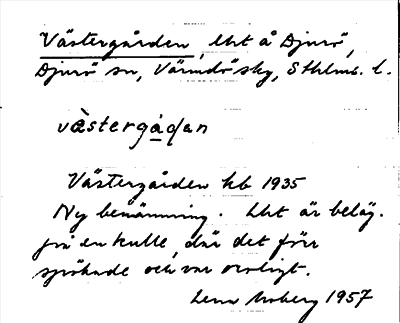 Västergården, lht å Djurö,
Djurö sn, Värmdö skg, Sthlms l.
västergådan
Västergården kb 1935
Ny benämning. Lht är beläg.
på en kulle, där det förr
spökade och var oroligt.
Lena Moberg 1957